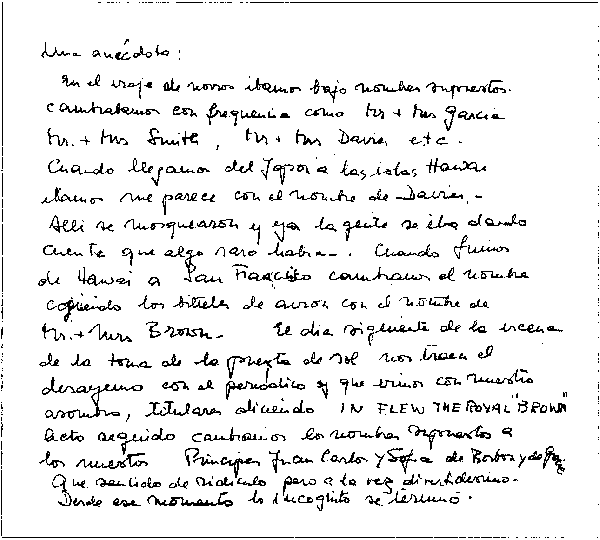 Una anécdota:
En el viaje de novios ibamos bajo nombres supuestos.
Cambiabamos con frequencia como Mr + Mrs Garcia
Mr. + Mrs Smith, Mr + Mrs Davies etc.
Cuando llegamos del Japon a las islas Hawai
ibamos me parece con el nombre de Davies.-
Alli se mosquearon y ya la gente se iba dando
cuenta que algo raro habia-. Cuando fuimos
de Hawai a San Francisco cambiamos el nombre
cogiendo los billetes de avion con el nombre de
Mr. + Mrs Brown. El dia siguiente de la escena
de la toma de la puesta de sol nos traen el
desayuno con el periodico y que vimos con nuestro
asombro, titulares diciendo IN FLEW THE ROYAL "BROWN"
Acto seguido cambiamos los nombres supuestos a
los nuestros Principes Juan Carlos y Sofia de Borbon y de
Que sentido de ridiculo pero a la vez divertidisimo.
Desde ese momento lo incognito se terminó.